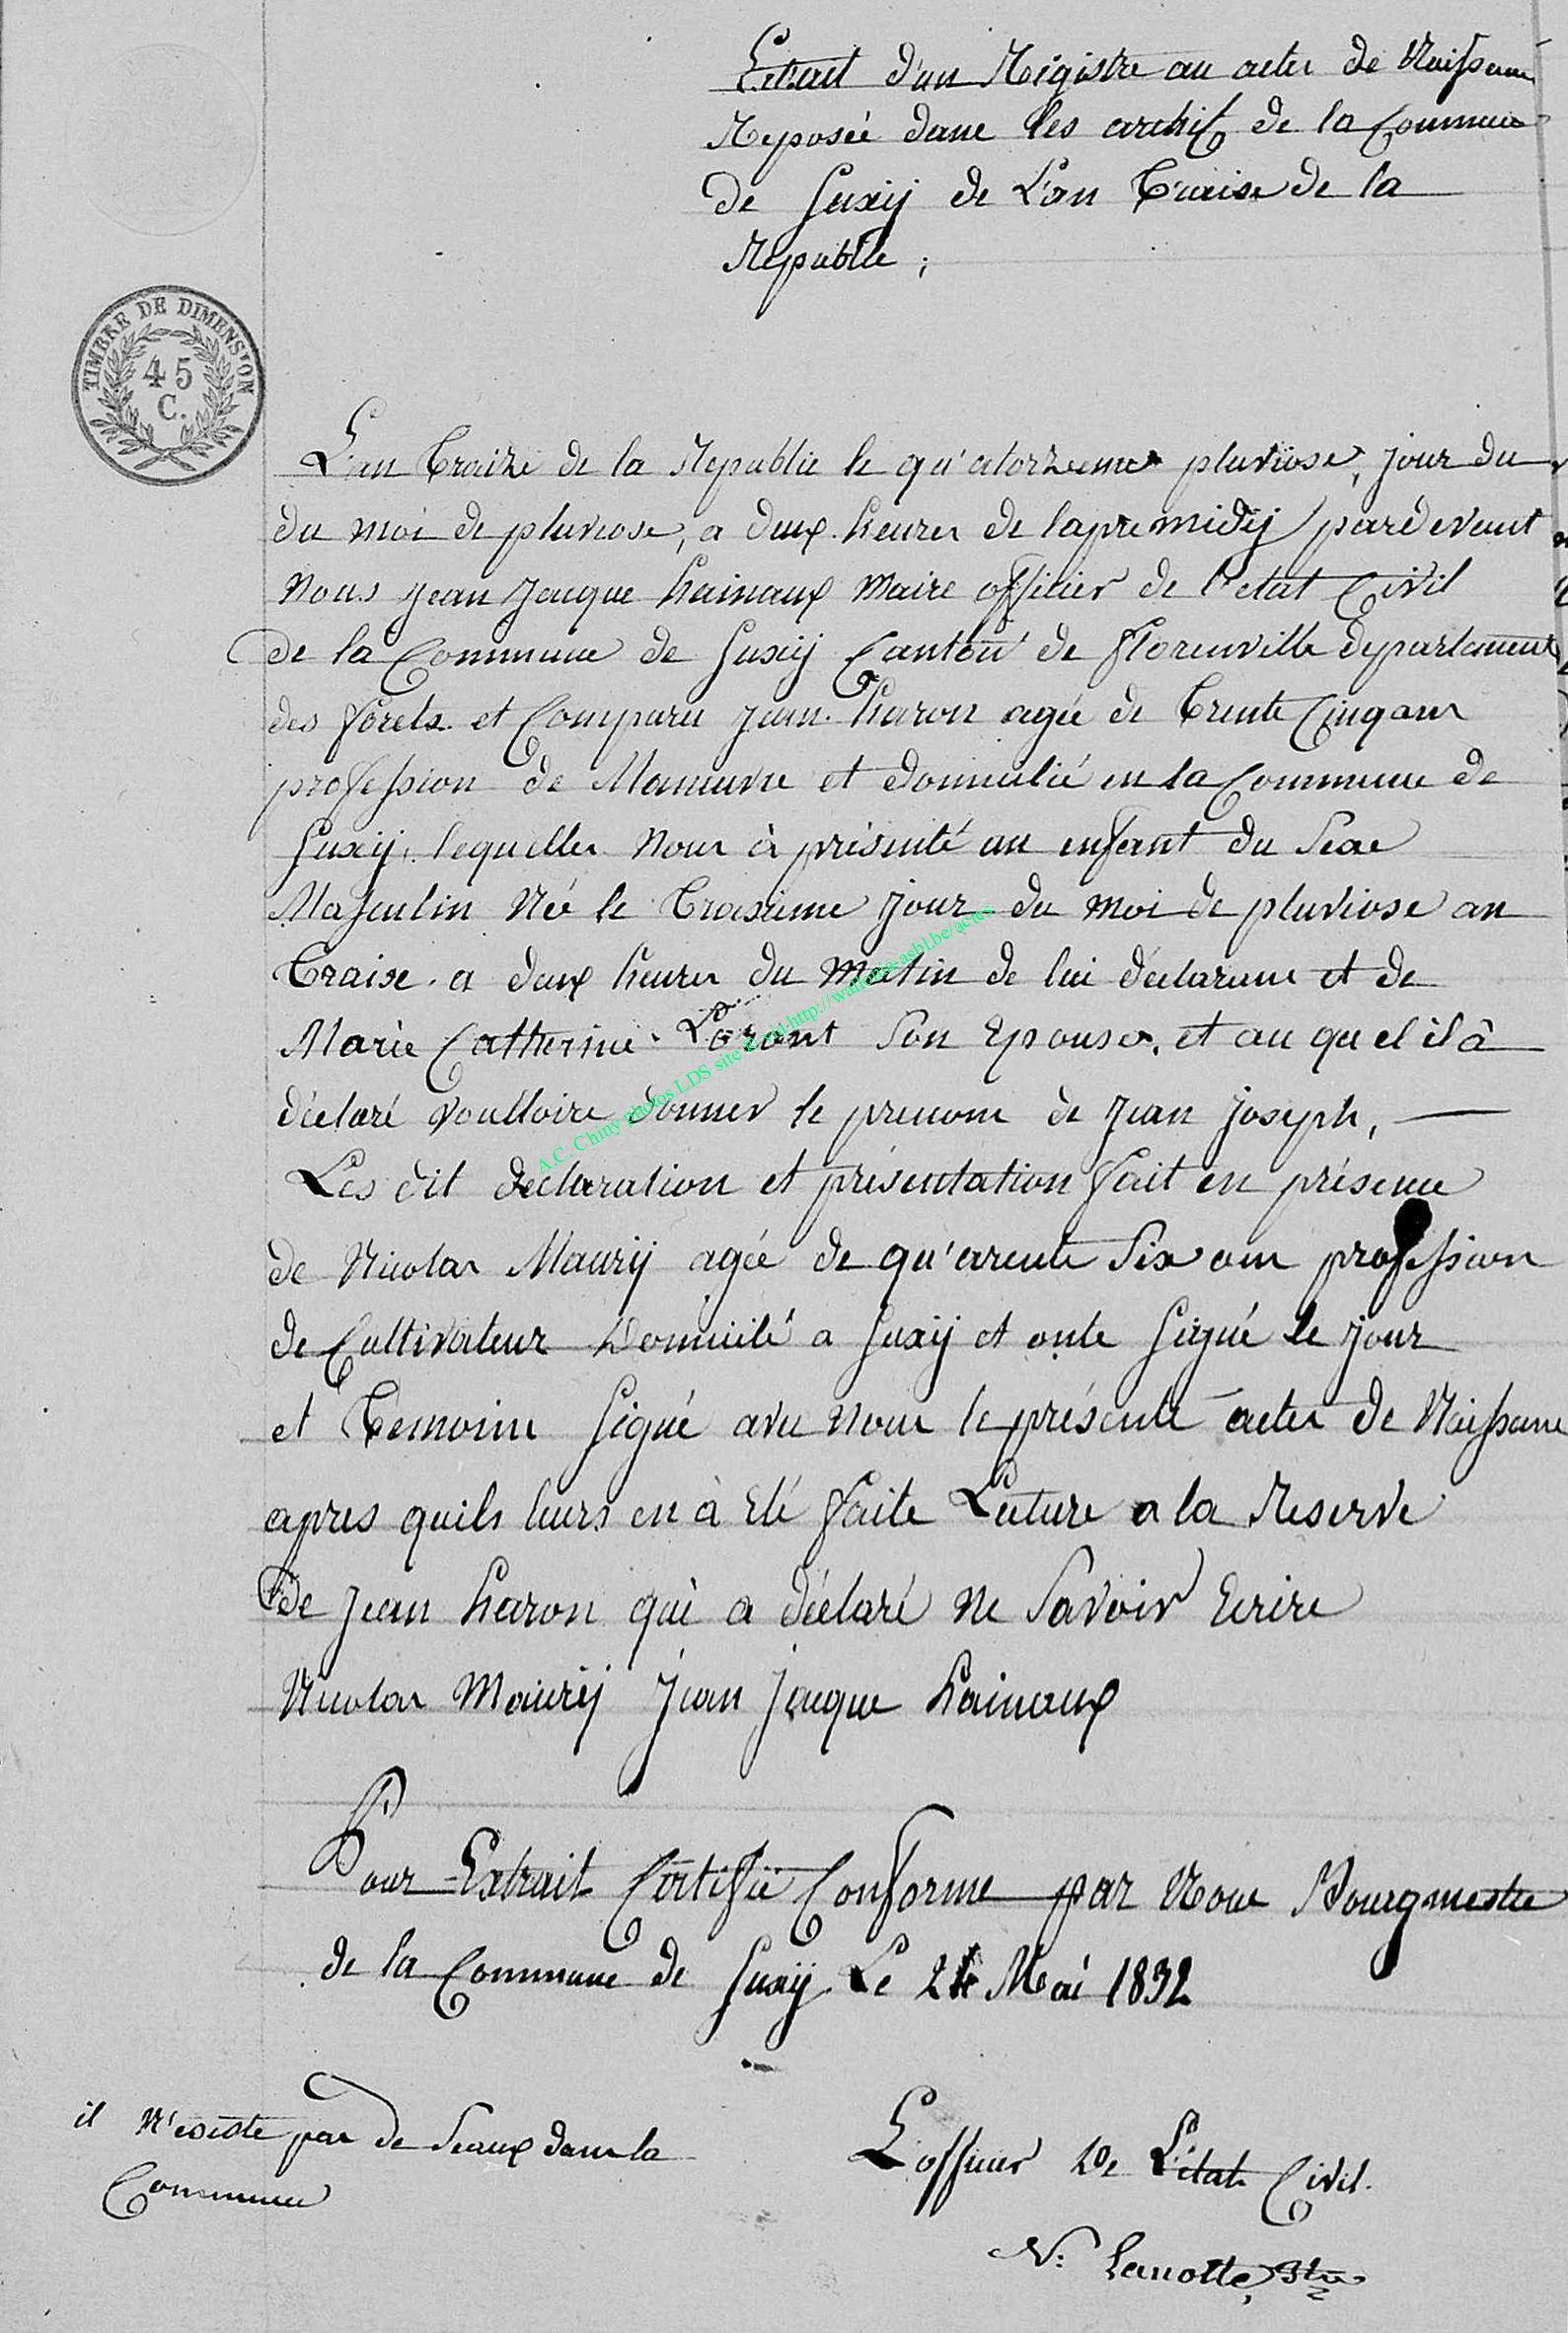 Extrait d'un Régistre au actes de Naissance
Reposée dans les archif de la Commune
de Suxÿ de L'an Traise de la
Republic ;
TIMBRE DE DIMENSION
45
C.
L'an Traize de la Republic le qu'atorzeme pluviose, jour du
du moi de pluviose, a deux heures de lapremidÿ pardevant
Nous Jean Jacque hainaux Maire officier de l'etat Civil
de la Commune de Suxÿ Canton de florenville departement
des forets et Comparu Jean haron agée de Trente Cinq ans
profession de Maneuvre et domicilié en la Commune de
Suxÿ lequelles Nous à présenté un enfant du Sexe
Masculin Né le Trasieme jour du moi de pluviose an
Traise a deux heures du Matin de lui déclarans et de
Marie Catherine Loront Son Epouse, et au quel il à
déclaré voulloire donner le prenom de Jean Joseph,
Les dit declaration et présentation fait en présence
de Nicolas Maurÿ agée de qu'arente Six ans profession
de Cultivateur Domicilé a Suxÿ et onte Signé le jour
et Temoins Signé avec Nous le présente actes de Naissance
apres quils leurs en à Eté faite Lecture a la Reserve
de Jean haron qui a déclaré ne Savoir Ecrire
Nicolas Maurÿ Jean Jacque hainaux
Pour Extrait Certifié Conforme par Nous Bourgmestre
de la Commune de Suxÿ Le 24 Mai 1832
il N'existe pas de Seaux dans la
Commune
L'officier De L'état Civil.
N: Lanotte
A.C. Chiny photos LDS site http://wallonia-asbl.be/actes